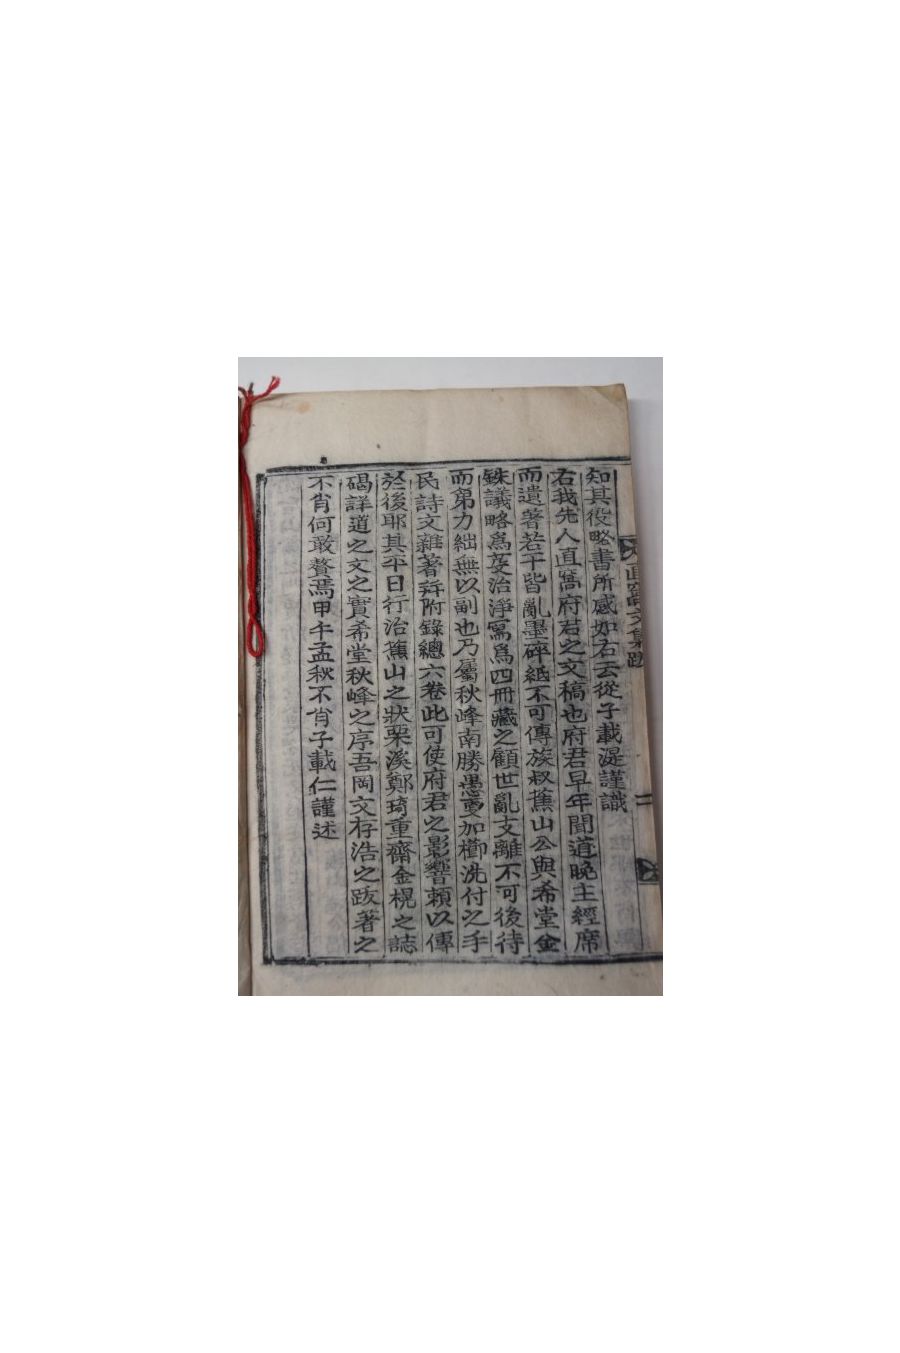 知其役略書所感如右云從子載湜謹識
右我先人直窩府君之文稿也府君早年聞道晩主經席
而遺著若干皆亂墨碎紙不可傳族叔蕉山公與希堂金
銖議略爲芟治淨寫爲四冊藏之顧世亂支離不可後待
而第力絀無以副也乃屬秋峰南勝愚更加櫛洗付之手
民詩文雜著幷附錄總六卷此可使府君之影響賴以傳
於後耶其平日行治蕉山之狀栗溪鄭琦重齋金榥之誌
碣詳道之文之實希堂秋峰之序吾岡文存浩之跋著之
不肖何敢贅焉甲午孟秋不肖子載仁謹述
直窩文集 跋